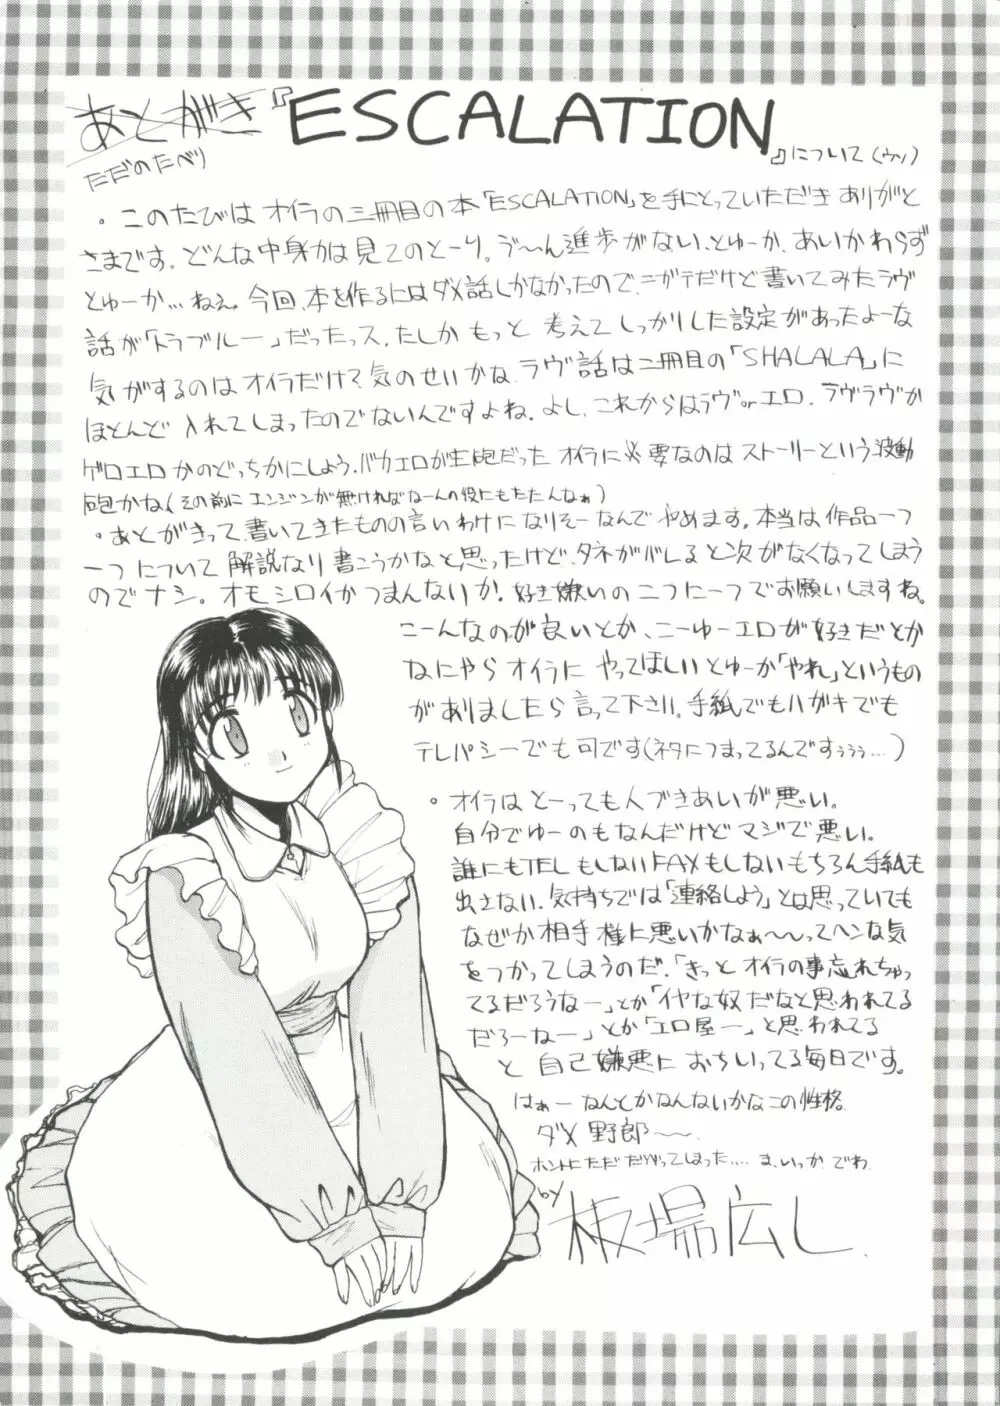 あとがき『ESCALATION』について(ウソ)
ただのだべり
・このたびはオイラの三冊目の本「ESCALATION」を手にとっていただきありがと
さまです。どんな中身かは見てのとーり。う〜ん進歩がない、とゅーか、あいかわらず
とゅーか…ねぇ。今回、本を作るにはダメ話しかなかったので、ニガテだけど書いてみたラヴ
話が「トラブルー」だったっス。たしかもっと考えてしっかりした設定があったよーな
気がするのはオイラだけ?気のせいかな。ラヴ話は二冊目の「SHALALA」に
ほとんど入れてしまったのでないんですよね。よし、これからはラヴorエロ。ラヴラヴか
ゲロエロかのどっちかにしよう。バカエロが主砲だったオイラに必要なのはストーリーという波動
砲かな(その前にエンジンが無ければなーんの役にもたたんなぁ)
・あとがきって、書いてきたものの言いわけになりそーなんでやめます。本当は作品一つ
一つについて解説なり書こうかなと思ったけど、タネがバレると次がなくなってしまう
のでナシ。オモシロイかつまんないか!好き嫌いの二つに一つでお願いしますね。
こーんなのが良いとか、こーゆーエロが好きだとか
なにやらオイラにやってほしいとゅーか「やれ」というもの
がありましたら言って下さい。手紙でもハガキでも
テレパシーでも可です(ネタにつまってるんですぅぅぅ…)
・オイラはとーっても人づきあいが悪い。
自分でゆーのもなんだけどマジで悪い。
誰にもTELもしないFAXもしないもちろん手紙も
出さない。気持ちでは「連絡しよう」とは思っていても
なぜか相手様に悪いかなぁ〜〜ってヘンな気
をつかってしまうのだ。「きっとオイラの事忘れちゃっ
てるだろうなー」とか「イヤな奴だなと思われてる
だろーねー」とか「エロ屋ー」と思われてる
と自己嫌悪におちいってる毎日です。
はぁーなんとかなんないかなこの性格
ダメ野郎〜〜
ホントにただだべってしまった….ま、いっか。でわ
by
板場広し